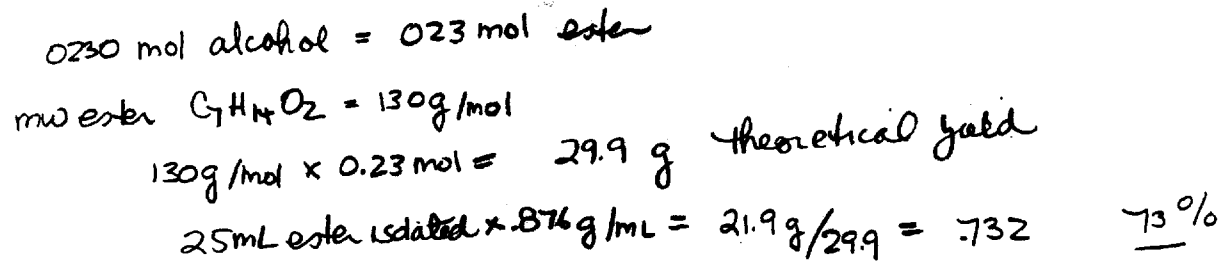 0230 mol alcohol = 023 mol ester
mw ester C7H14O2 = 130g/mol
130g/mol x 0.23 mol = 29.9 g theoretical yield
25mL ester isolated x .876 g/mL = 21.9g/29.9 = .732 73%